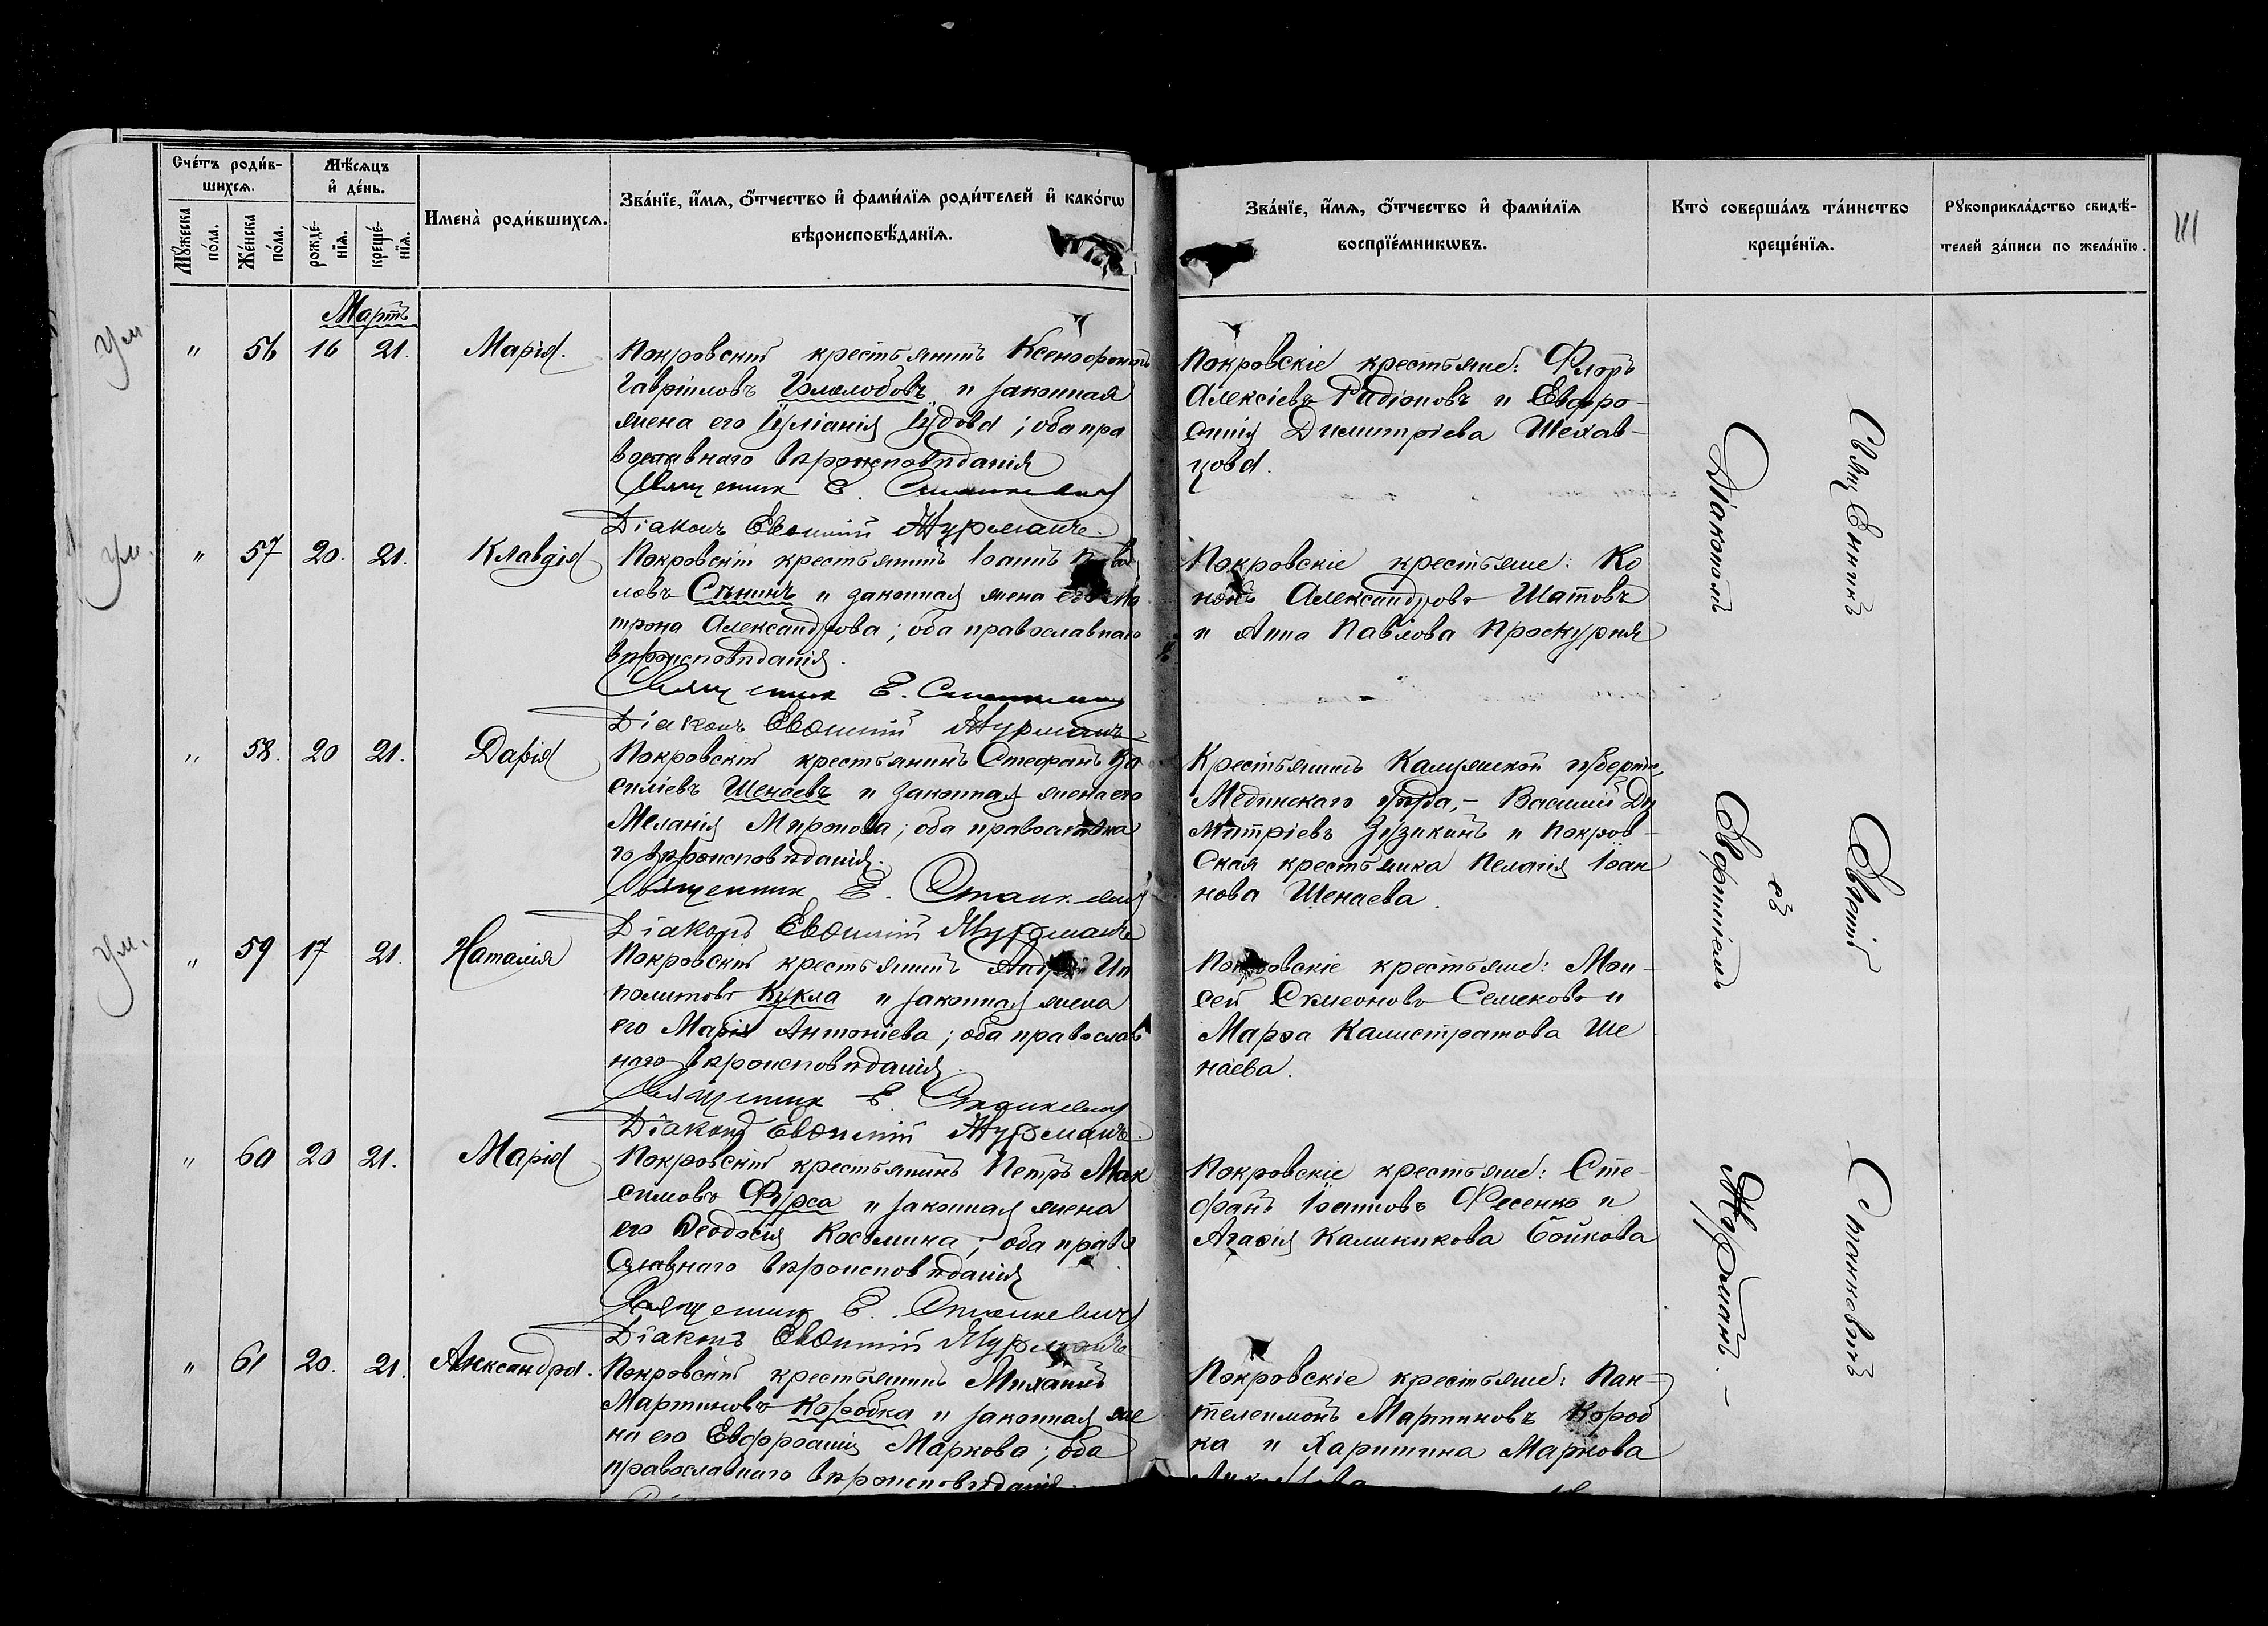 Счéтъ роди́в-
шихсѧ.
Мѣ́сѧцъ
и҆ дéнь.
Мꙋ́жеска
пóла.
Жéнска
пóла.
рождé-
нїѧ.
крещé-
нїѧ.
Именà роди́вшихсѧ.
Звáнїе, и҆́мѧ, ѻ҆́тчество и҆ фами́лїѧ роди́телей и҆ какóгѡ
вѣроисповѣ́данїѧ.
Звáнїе, и҆́мѧ, ѻ҆́тчество и҆ фами́лїѧ
воспрїéмникѡвъ.
Ктò совершáлъ тáинство
крещéнїѧ.
Рꙋкоприклáдство свидѣ́-
телей зáписи по желáнїю.
111
Мартъ
Ум
" 56 16 21. Марія.
Покровскій крестьянинъ Ксенофонтъ
Гавріиловъ Гололобовъ и законная
жена его Іуліанія Іудова; оба пра
вославнаго вѣроисповѣданія
Священникъ Е. Станкевичъ
Діаконъ Евѳимій Журманъ.
Покровскіе крестьяне: Флоръ
Алексіевъ Радіоновъ и Евфро-
синія Димитріева Шехав-
цова.
Ум.
" 57 20. 21. Клавдія
Покровскій крестьянинъ Іоаннъ
ловъ Сѣнинъ и законная жена его Ма
трона Александрова; оба православнаго
вѣроисповѣданія.
Священникъ Е. Станкевичъ
Діаконъ Евѳимій Журманъ
Покровскіе крестьяне: Ко
нонъ Александровъ Шатовъ
и Анна Павлова Проскурня
" 58. 20 21. Дарія
Покровскій крестьянинъ Стефанъ Ва
силіевъ Шенаевъ и законная жена его
Меланія Миронова; оба православна
го вѣроисповѣданія.
Священникъ Е. Станкевичъ
Діаконъ Евѳимій Журманъ
Крестьянинъ Калужской губерніи,
Мединскаго уѣзда, - Василій Ди
митріевъ и Покров-
ская крестьянка Пелагія Іоан
нова Шенаева.
Ум.
" 59 17 21. Наталія
Покровскій крестьянинъ Андрей Ип
политовъ Кукла и законная жена
его Марія Антоніева; оба православ
наго вѣроисповѣданія.
Священникъ Е. Станкевичъ
Діаконъ Евѳимій Журманъ.
Покровскіе крестьяне: Мои-
сей Симеоновъ Семековъ и
Марѳа Калистратова Ше
наева.
" 60 20 21. Марія
Покровскій крестьянинъ Петръ Мак
симовъ Фурса и законная жена
его Ѳеодосія Косьмина; оба право
славнаго вѣроисповѣданія
Священникъ Е. Станкевичъ
Діаконъ Евѳимій Журманъ
Покровскіе крестьяне: Сте-
фанъ Іоанновъ Фесенко и
Агаѳія Калиникова Бойкова
" 61 20. 21. Александра.
Покровскій крестьянинъ Михаилъ
Мартиновъ Коробка и законная же
на его Евфросинія Маркова; оба
православнаго вѣроисповѣданія.
Покровскіе крестьяне: Пан-
телеимонъ Мартиновъ Короб
ка и Харитина Маркова
Священникъ Евгеній Станкевичъ
съ
Діакономъ Евфиміемъ Журманъ. -